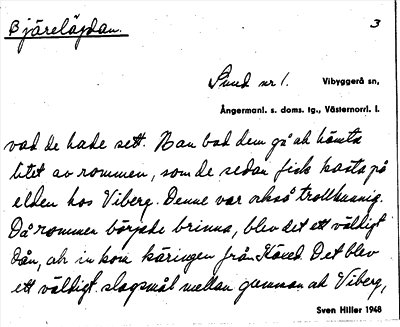 Bjäreläjdan. 3
Sund nr 1. Vibyggerå sn,
Ångermanl. s. doms. tg., Västernorrl. l.
vad de hade sett. Han bad dem gå och hämta
litet av rommen, som de sedan fick kasta på
elden hos Viberg. Denne var också trollkunnig.
Då rommen började brinna, blev det ett väldigt
dån, och in kom käringen från Köxed. Det blev
ett väldigt slagsmål mellan gumman och Viberg,
Sven Hiller 1948